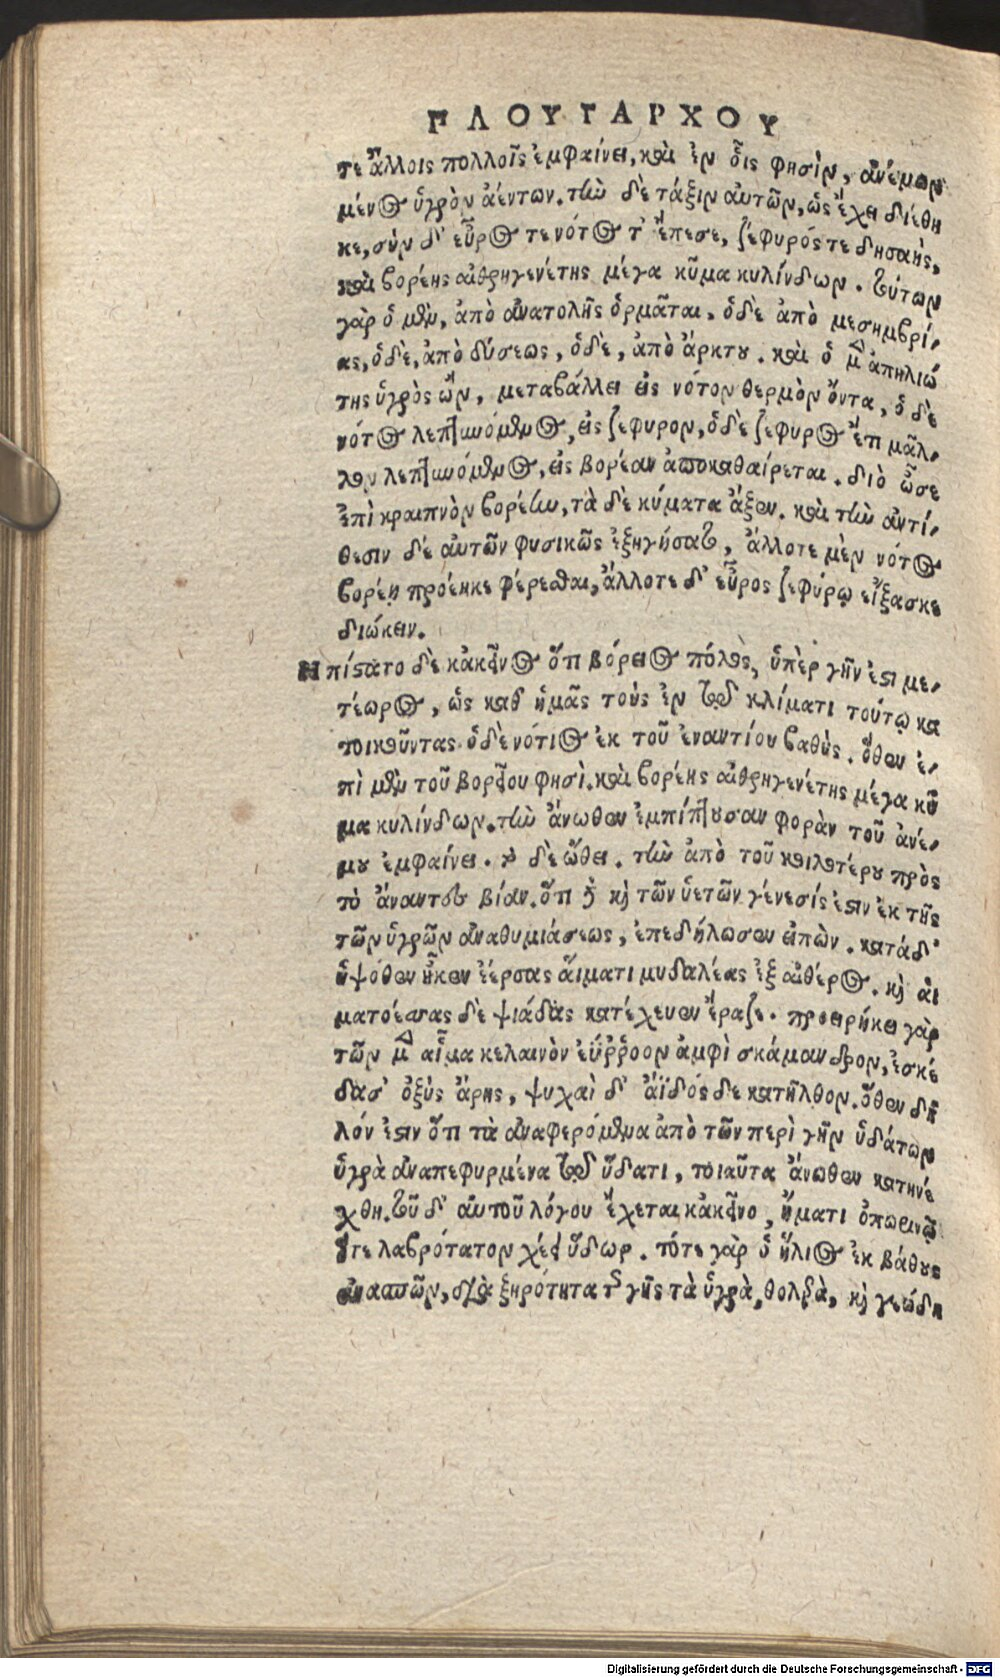 ΠΛΟΥΤΑΡΧΟΥ
τε ἄλλοις πολλοῖς ἐμφαίνει, καὶ ἐν οἷς φησὶν, ἀνέμων
μένος ὑγρὸν ἀέντων. τὴν δὲ τάξιν αὐτῶν, ὡς ἔχει διέθη
κε, σὺν δ' εὖρος τε νότος τ' ἔπεσε, ζεφυρός τε δυσαὴς,
καὶ βορέης αἰθρηγενέτης μέγα κῦμα κυλίνδων. τούτων
γὰρ ὁ μὲν, ἀπὸ ἀνατολῆς ὁρμᾶται, ὁ δὲ ἀπὸ μεσημβρί-
ας, ὁ δὲ, ἀπὸ δύσεως, ὁ δὲ, ἀπὸ ἄρκτου. καὶ ὁ μὲν ἀπηλιώ
της ὑγρὸς ὢν, μεταβάλλει εἰς νότον θερμὸν ὄντα, ὁ δὲ
νότος λεπτυνόμενος, εἰς ζεφυρον, ὁ δὲ ζεφυρος ἔτι μᾶλ-
λον λεπτυνόμενος, εἰς βορέαν ἀποκαθαίρεται. διὸ ὦσε
ἐπὶ κραιπνὸν βορέην, τὰ δὲ κύματα ἄξεν. καὶ τὴν ἀντί-
θεσιν δὲ αὐτῶν φυσικῶς ἐξηγήσατο, ἄλλοτε μὲν νότος
βορέῃ προέηκε φέρεσθαι, ἄλλοτε δ' εὖρος ζεφύρῳ εἴξασκε
διώκειν.
Ηπίστατο δὲ κἀκεῖνο ὅτι βόρειος πόλος, ὑπὲρ γῆν ἐστι με-
τέωρος, ὡς καθ ἡμᾶς τοὺς ἐν τῷ κλίματι τούτῳ κα
τοικοῦντας ὁ δὲ νότιος ἐκ τοῦ ἐναντίου βαθὺς. ὅθεν ἐ-
πὶ μὲν τοῦ βορείου φησὶ. καὶ βορέης αἰθρηγενέτης μέγα κῦ
μα κυλίνδων. τὴν ἄνωθεν ἐμπίπτουσαν φορὰν τοῦ ἀνέ-
μου ἐμφαίνει. τὸ δὲ ὤθει. τὴν ἀπὸ τοῦ κοιλοτέρου πρὸς
τὸ ἄναντες βίαν. ὅτι δὲ καὶ τῶν ὑετῶν γένεσίς ἐστιν ἐκ τῆς
τῶν ὑγρῶν ἀναθυμιάσεως, ἐπεδήλωσεν εἰπὼν. κατὰ δ'
ὑψόθεν ἧκεν ἐέρσας αἵματι μυδαλέας ἐξ αἰθέρος. καὶ αἱ
ματοέσσας δὲ ψιάδας κατέχευεν ἔραζε. προειρήκει γὰρ
τῶν μὲν αἷμα κελαινὸν ἐΰρροον ἀμφὶ σκάμανδρον, ἐσκέ
δασ' ὀξὺς ἄρης, ψυχαὶ δ' ἄϊδός δε κατῆλθον. ὅθεν δῆ
λόν ἐστιν ὅτι τὰ ἀναφερόμενα ἀπὸ τῶν περὶ γῆν ὑδάτων
ὑγρὰ ἀναπεφυρμένα τῷ ὕδατι, τοιαῦτα ἄνωθεν κατηνέ
χθη. τοῦ δ' αὐτοῦ λόγου ἔχεται κἀκεῖνο, ἤματι ὀπωρινῷ
ὅτε λαβρότατον χέει ὕδωρ. τότε γὰρ ὁ ἥλιος ἐκ βάθους
ἀνασπῶν, διὰ ξηρότητα τῆς γῆς τὰ ὑγρὰ, θολερὰ, καὶ γεώδη
Digitalisierung gefördert durch die Deutsche Forschungsgemeinschaft - DFG